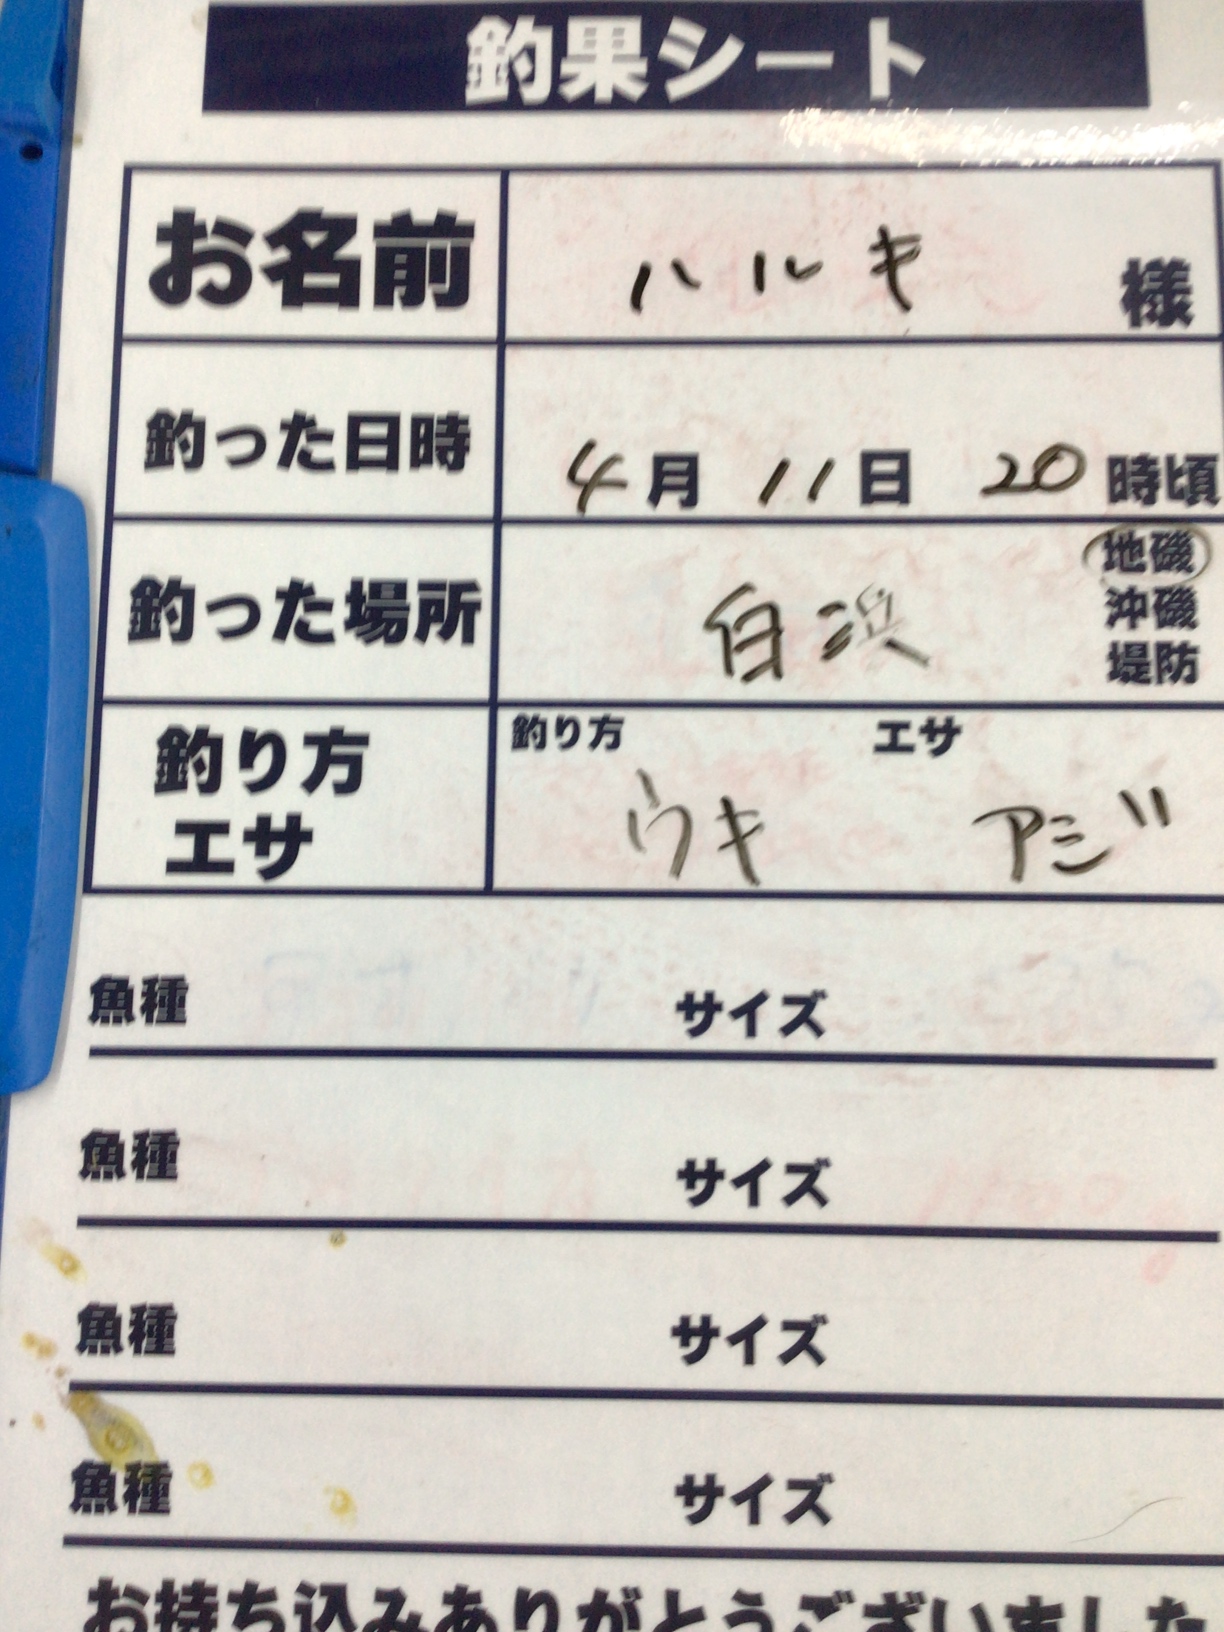 釣果シート
お名前 ハルキ 様
釣った日時 4月 11日 20時頃
釣った場所 白浜 地磯
沖磯
堤防
釣り方 釣り方 エサ
エサ ウキ アジ
魚種 サイズ
魚種 サイズ
魚種 サイズ
魚種 サイズ
お持ち込みありがとうございました